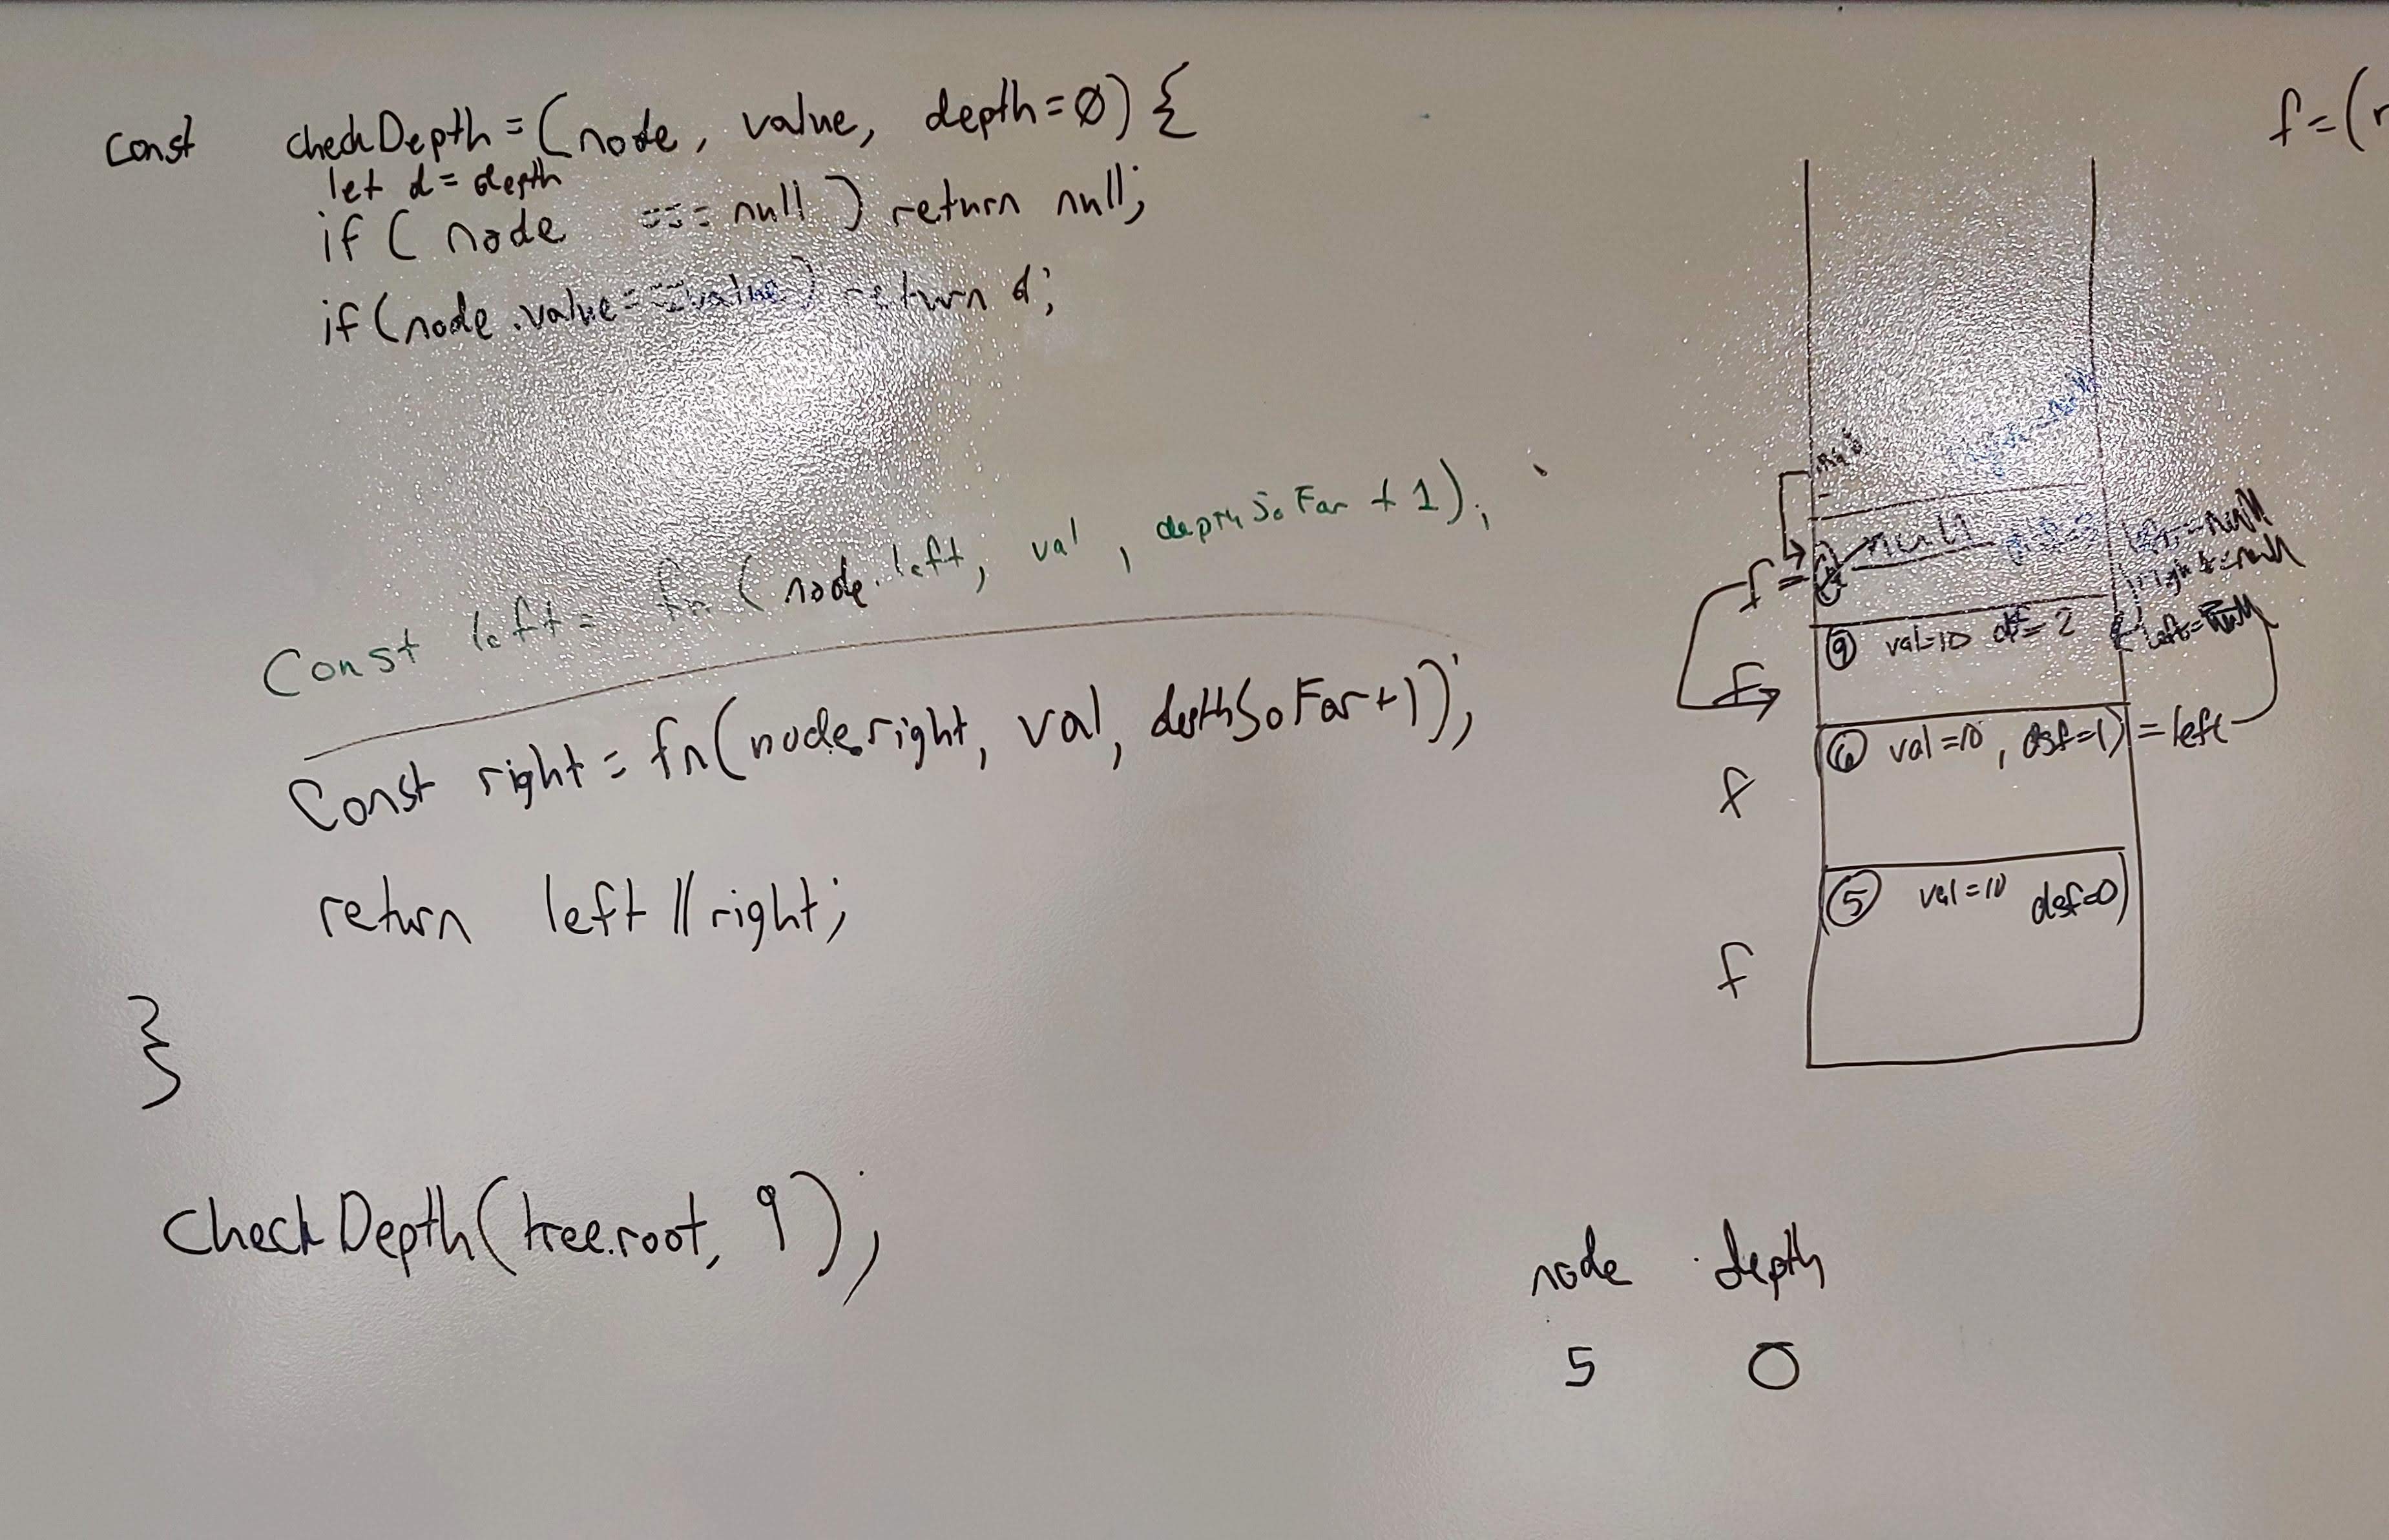 const checkDepth = (node, value, depth=0) {
let d = depth
if ( node === null ) return null;
if (node.value === value) return d;
Const left = fn (node.left, val, depthSoFar + 1);
Const right = fn(node.right, val, depthSoFar+1);
return left || right;
}
checkDepth(tree.root, 9);
f=(
null
f =
left=null
right=null
9 val=10 dsf=2 left=null
f
6 val=10, dsf=1) = left
f
5 val=10 dsf=0)
f
node depth
5 0